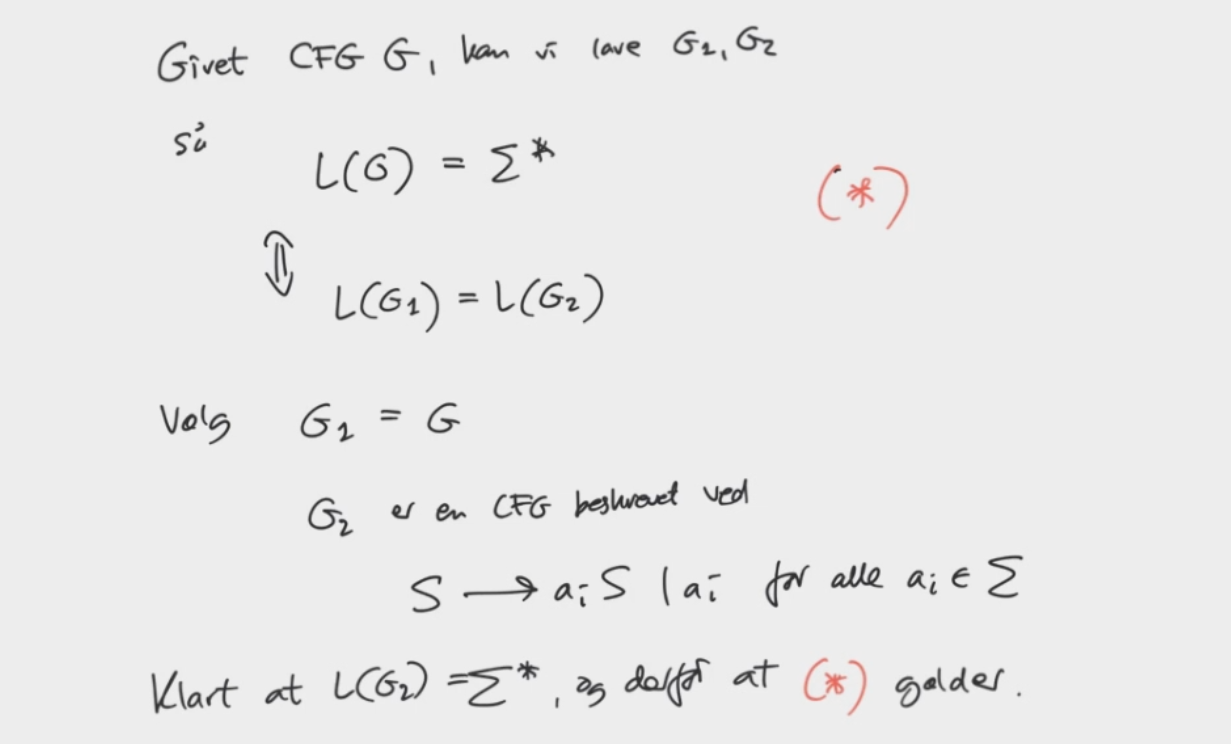 Givet CFG G, kan vi lave G₁, G₂
så
L(G) = Σ* (*)
⇕
L(G₁) = L(G₂)
Vælg G₁ = G
G₂ er en CFG beskrevet ved
S → aᵢS | aᵢ for alle aᵢ ∈ Σ
Klart at L(G₂) = Σ*, og derfor at (*) gælder.